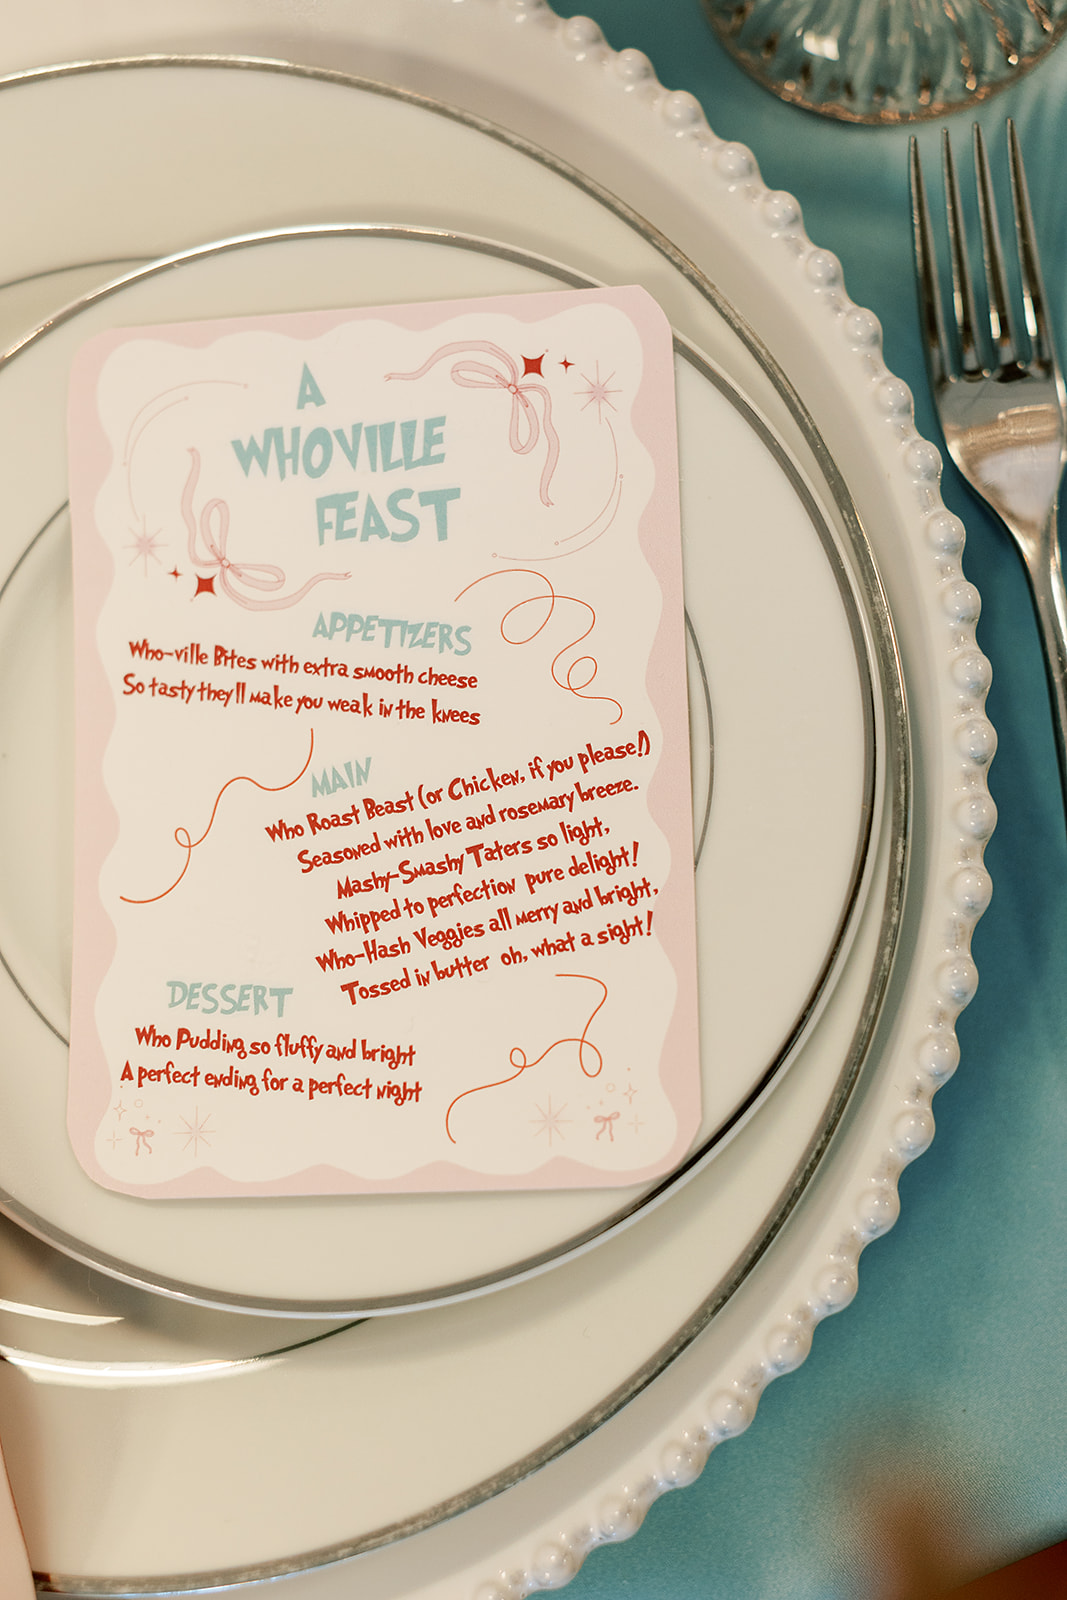 A
WHOVILLE
FEAST
APPETIZERS
Who-ville Bites with extra smooth cheese
So tasty they'll make you weak in the knees
MAIN
Who Roast Beast (or Chicken, if you please!)
Seasoned with love and rosemary breeze.
Mashy-Smashy Taters so light,
Whipped to perfection pure delight!
Who-Hash Veggies all merry and bright,
Tossed in butter oh, what a sight!
DESSERT
Who Pudding so fluffy and bright
A perfect ending for a perfect night